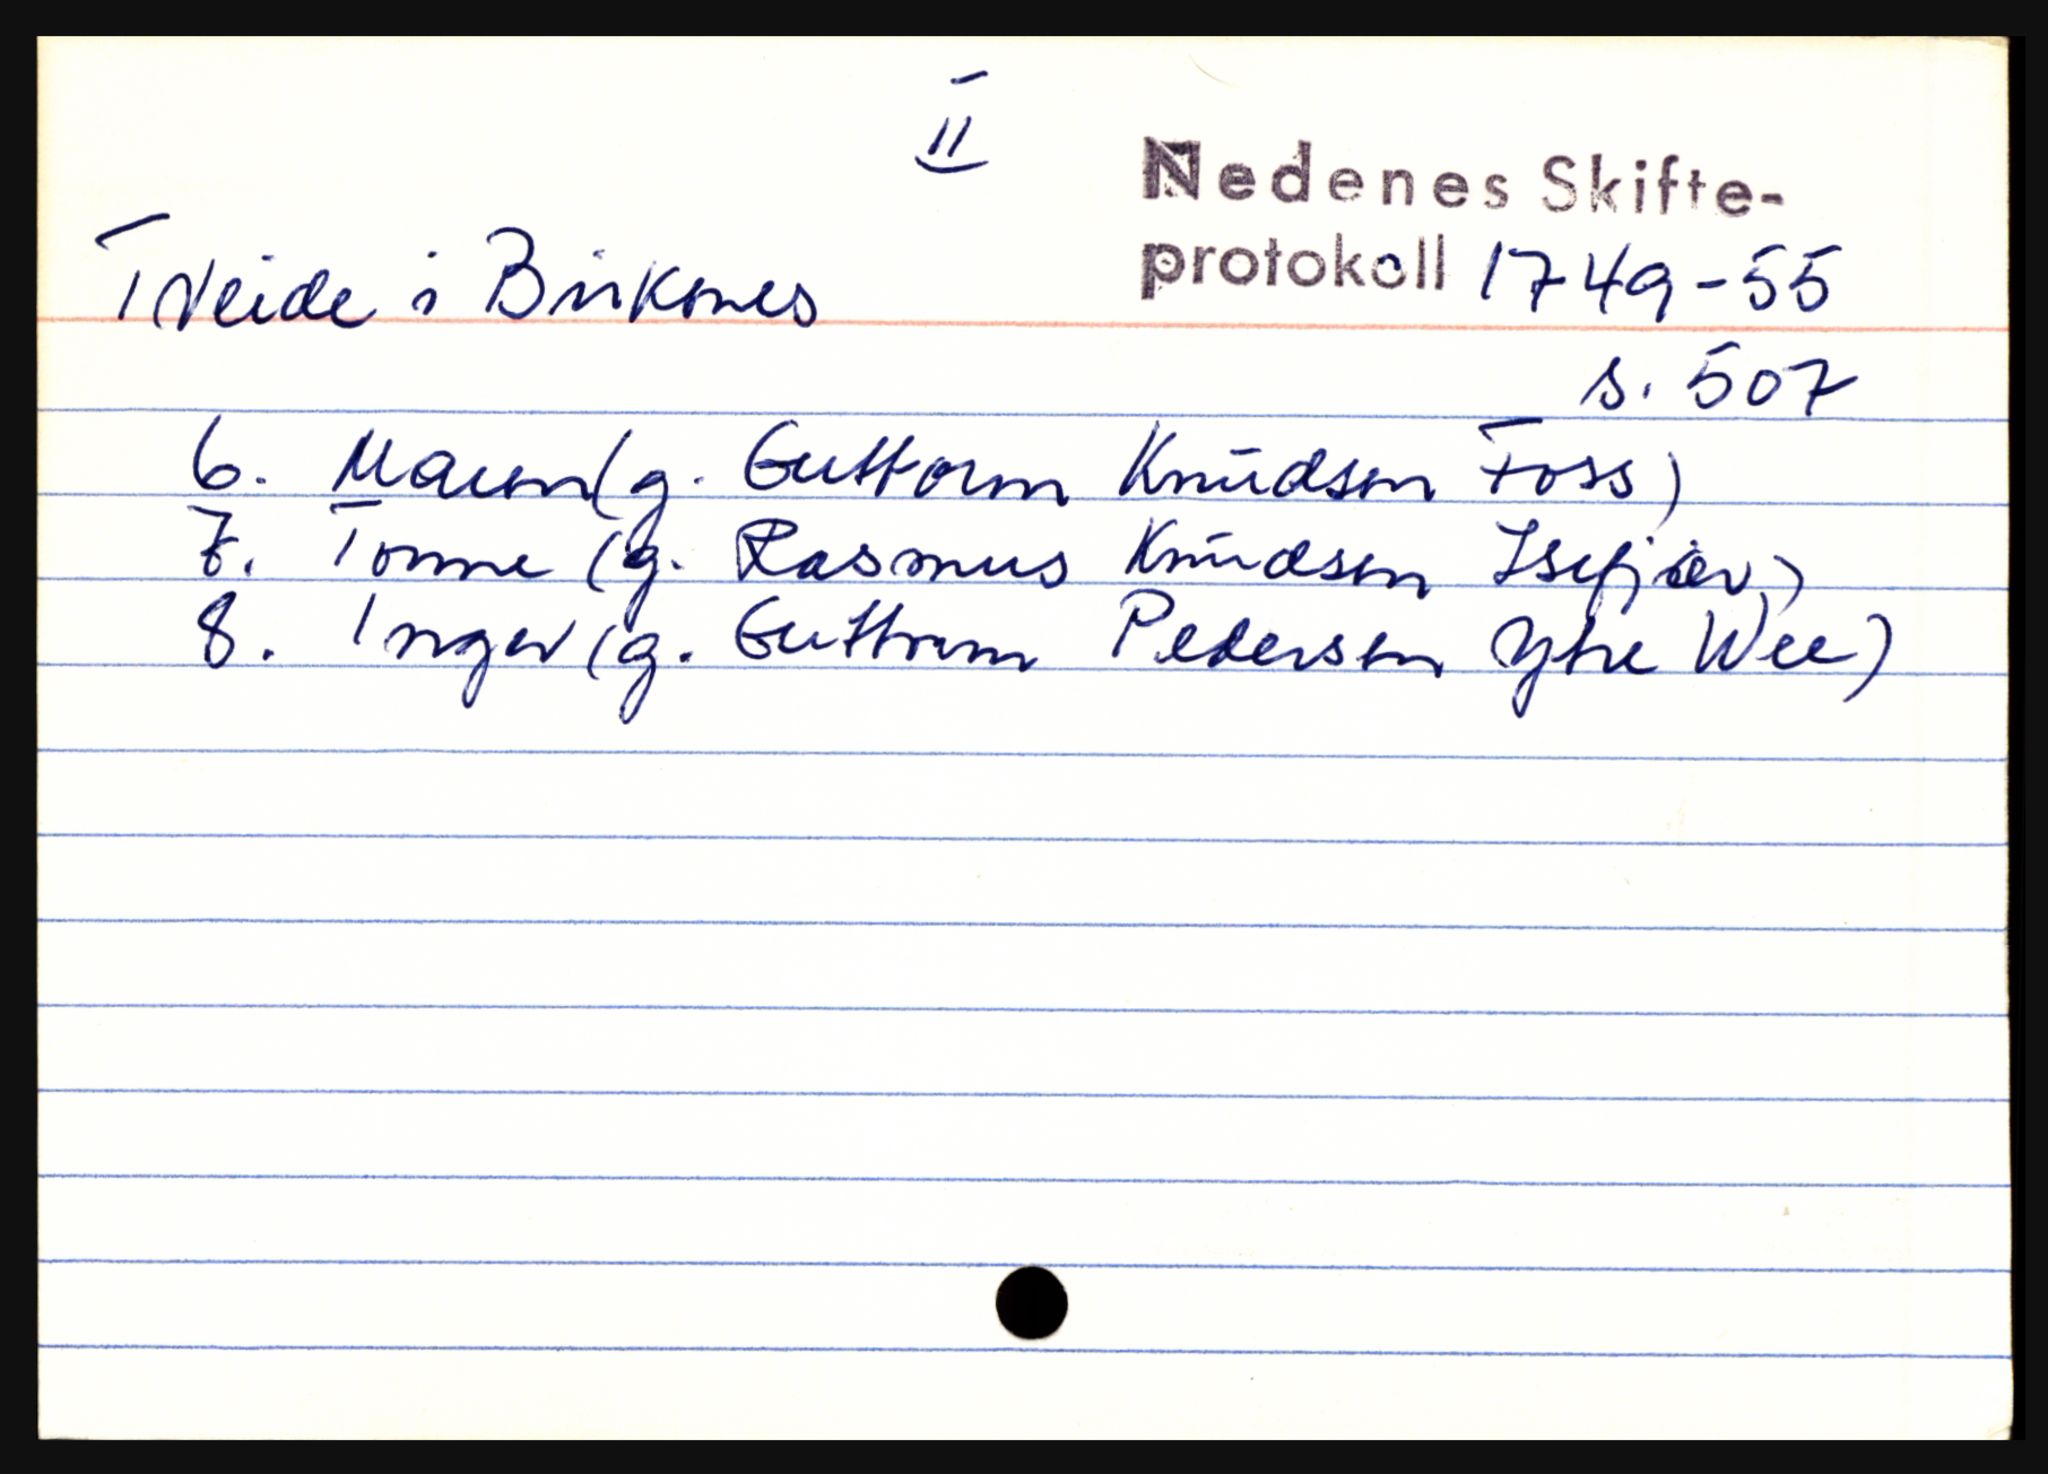 II
Nedenes Skifte-
protokoll 1749-55
Tveide i Birkenes
s. 507
6. Maren (g. Guttorm Knudsen Foss)
7. Tonne (g. Rasmus Knudsen Isefjær)
8. Inger (g. Guttorm Pedersen Ytre Wee)